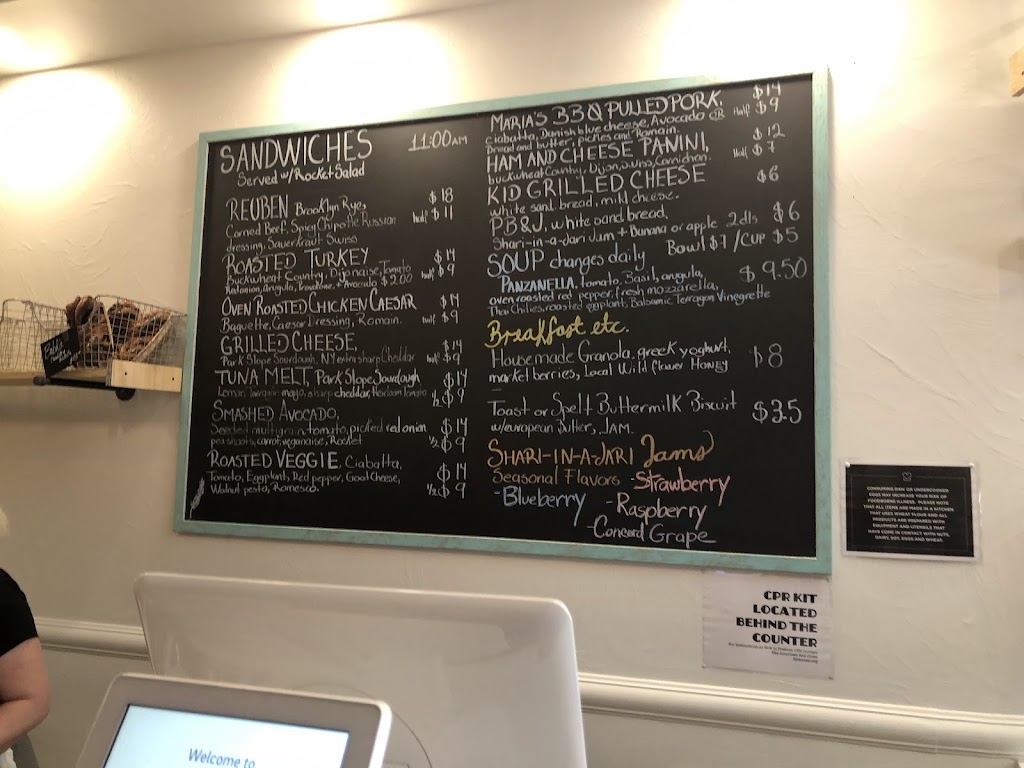 SANDWICHES 11:00AM
Served w/Rocket Salad
REUBEN Brooklyn Rye, $18
Corned Beef, Spicy Chipotle Russian half $11
dressing, Sauerkraut Swiss
ROASTED TURKEY $14
Buckwheat Country, Dijonaise, Tomato half $9
Arugula, + Avocado $2.00
OVEN ROASTED CHICKEN CAESAR $14
Baguette, Caesar Dressing, Romain. half $9
GRILLED CHEESE, $14
Park Slope Sourdough, NY extra sharp Cheddar half $9
TUNA MELT, Park Slope Sourdough $14
Lemon tarragon mayo, sharp cheddar, Heirloom tomato 1/2 $9
SMASHED AVOCADO,
Seeded multigrain, tomato, pickled red onion $14
pea shoots, carrot, veganaise, Rocket 1/2 $9
ROASTED VEGGIE, Ciabatta, $14
Tomato, Eggplant, Red pepper, Goat Cheese, 1/2 $9
Walnut pesto, Romesco.
MARIA'S BBQ PULLED PORK, $14
ciabatta, Danish blue cheese, Avocado OR Half $9
Bread and butter, pickles and Romain.
HAM AND CHEESE PANINI, $12
buckwheat Country, Dijon, Swiss, Cornichon. Half $7
KID GRILLED CHEESE $6
white sand. bread, mild cheese.
PB&J, white sand bread, $6
Shari-in-a-Jari Jam + Banana or apple 2dls
SOUP changes daily Bowl $7 / CUP $5
PANZANELLA, tomato, Basil, arugula, $9.50
oven roasted red pepper, fresh mozzarella,
Thai Chilies, roasted eggplant, Balsamic Terragon Vinegrette
Breakfast etc.
Housemade Granola, greek yoghurt, $8
market berries, Local Wild flower Honey
Toast or Spelt Buttermilk Biscuit $3.5
w/european Butter, JAM.
SHARI-IN-A-JARI Jams
Seasonal Flavors - Strawberry
- Blueberry - Raspberry
- Concord Grape
CONSUMING RAW OR UNDERCOOKED
EGGS MAY INCREASE YOUR RISK OF
FOODBORNE ILLNESS. PLEASE NOTE
THAT ALL ITEMS ARE MADE IN A KITCHEN
THAT USES WHEAT FLOUR AND ALL
PRODUCTS ARE PREPARED WITH
EQUIPMENT AND UTENSILS THAT
HAVE COME IN CONTACT WITH NUTS,
DAIRY, SOY, EGGS AND WHEAT.
CPR KIT
LOCATED
BEHIND THE
COUNTER
Welcome to